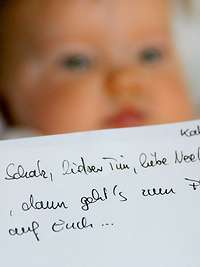 Kat
Schatz, lieber Tim, liebe Neel
, dann geht's zum P
auf Euch...